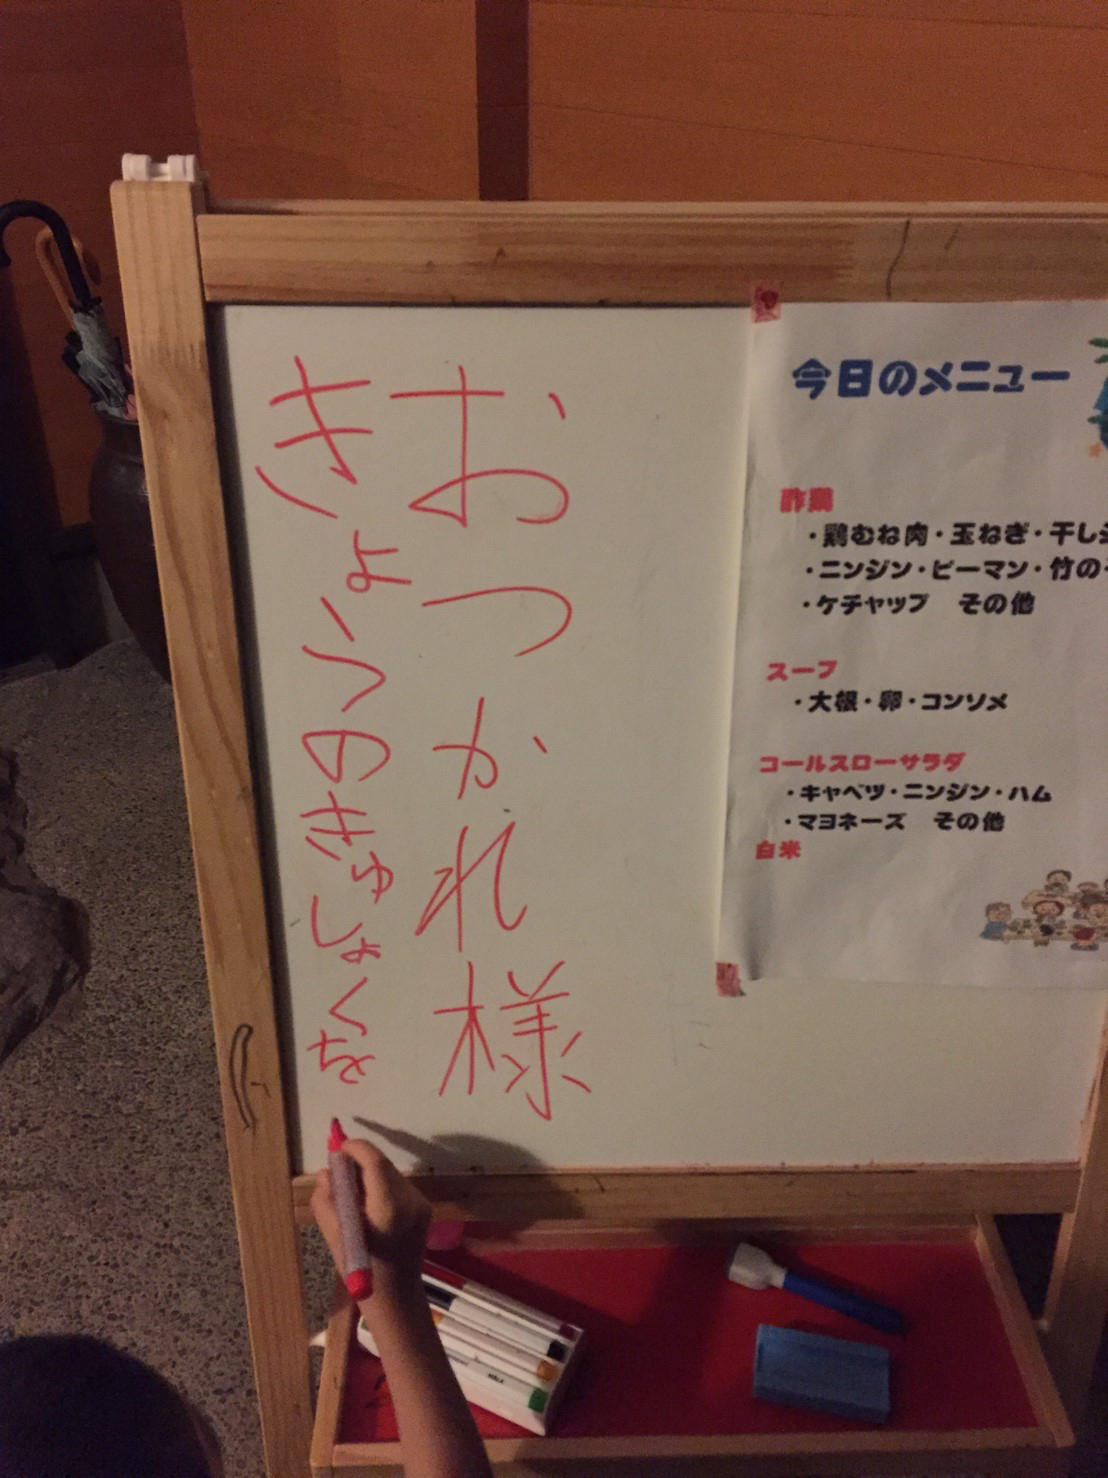 おつかれ様
きょうのきゅしょくを
今日のメニュー
酢鶏
・鶏むね肉・玉ねぎ・干し
・ニンジン・ピーマン・竹の
・ケチャップ その他
スープ
・大根・卵・コンソメ
コールスローサラダ
・キャベツ・ニンジン・ハム
・マヨネーズ その他
白米